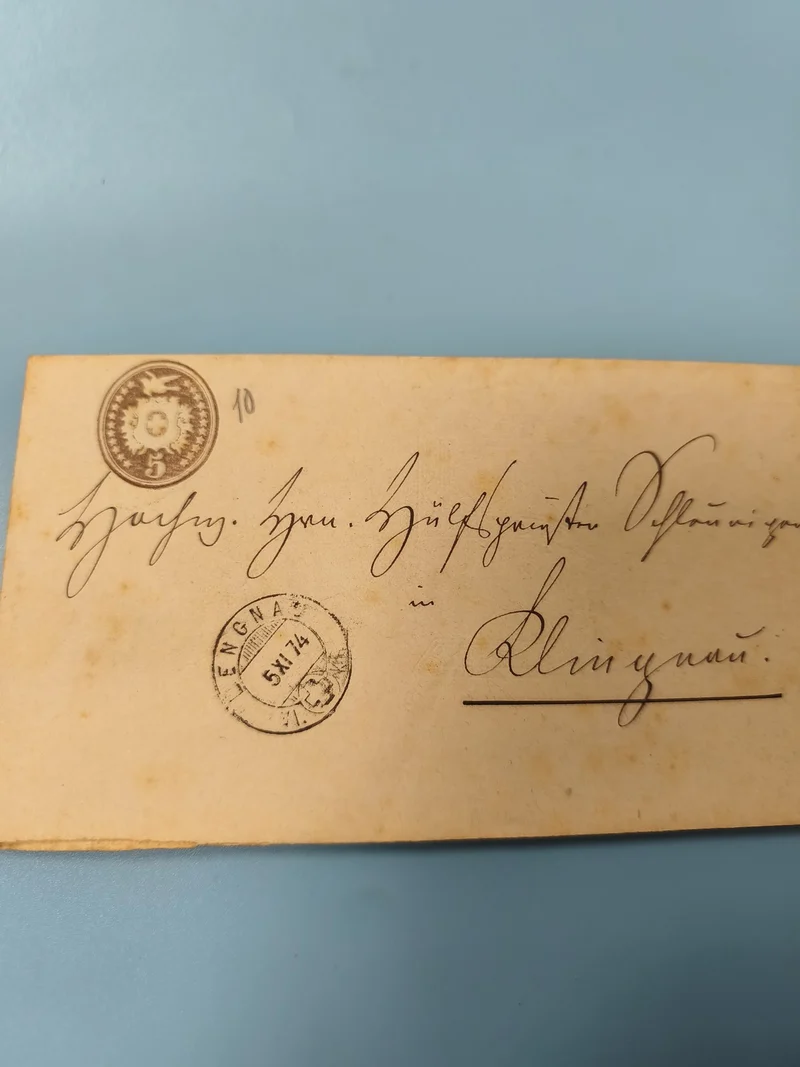 5
10
Hochw. Hrn. Hülfspriester Schleuniger
in
Klingnau.
LENGNAU
5 XI 74